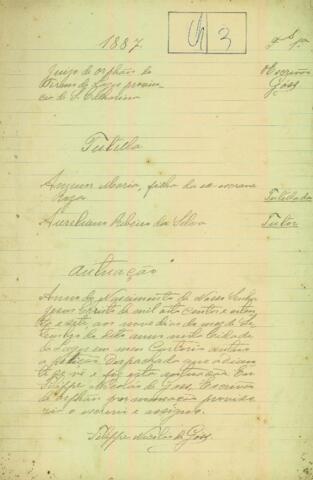 1887
Fs 1a
Juizo de Orphãos do
Termo de Lages provin-
cia de S. Catharina
O Escrivão
Goss
Tutella
Maria, filha da ex escrava
Roza
Tutellada
Aureliano Ribeiro da Silva
Tutor
Autuação
Anno do Nascimento de Nosso Senhor
Jesus Christo de mil oito centos e oiten-
ta e sete, aos nove dias do mez de Se-
tembro do dito anno nesta Cidade
de Lages em meu Cartorio autuo
a petição despachada que adian-
te se vê e fiz esta autuação Eu
Felippe Nicoláo de Goss, Escrivão
de orphãos por nomeação provizo-
ria o escrevi e assigno.
Felippe Nicoláo de Goss